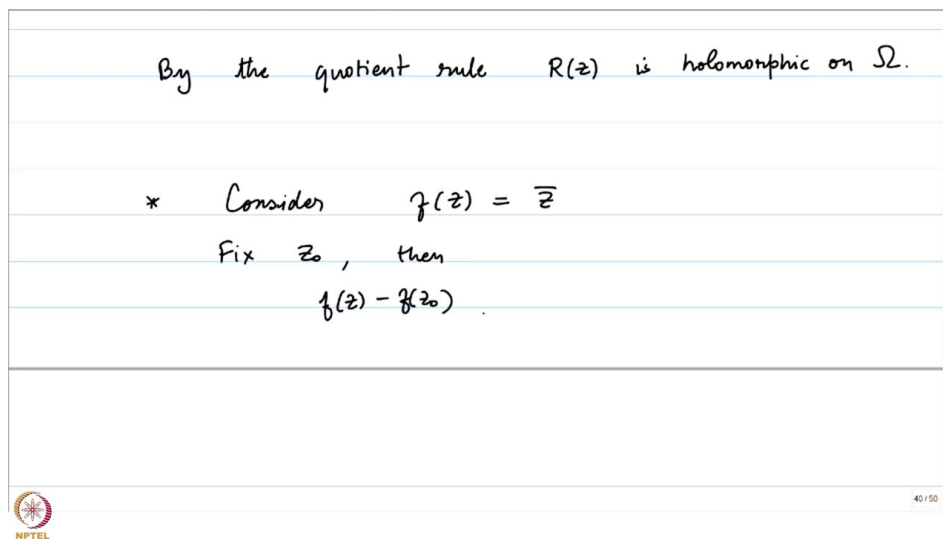 By the quotient rule R(z) is holomorphic on Ω.
* Consider f(z) = z̅
Fix z₀, then
f(z) - f(z₀)
40 / 50
NPTEL